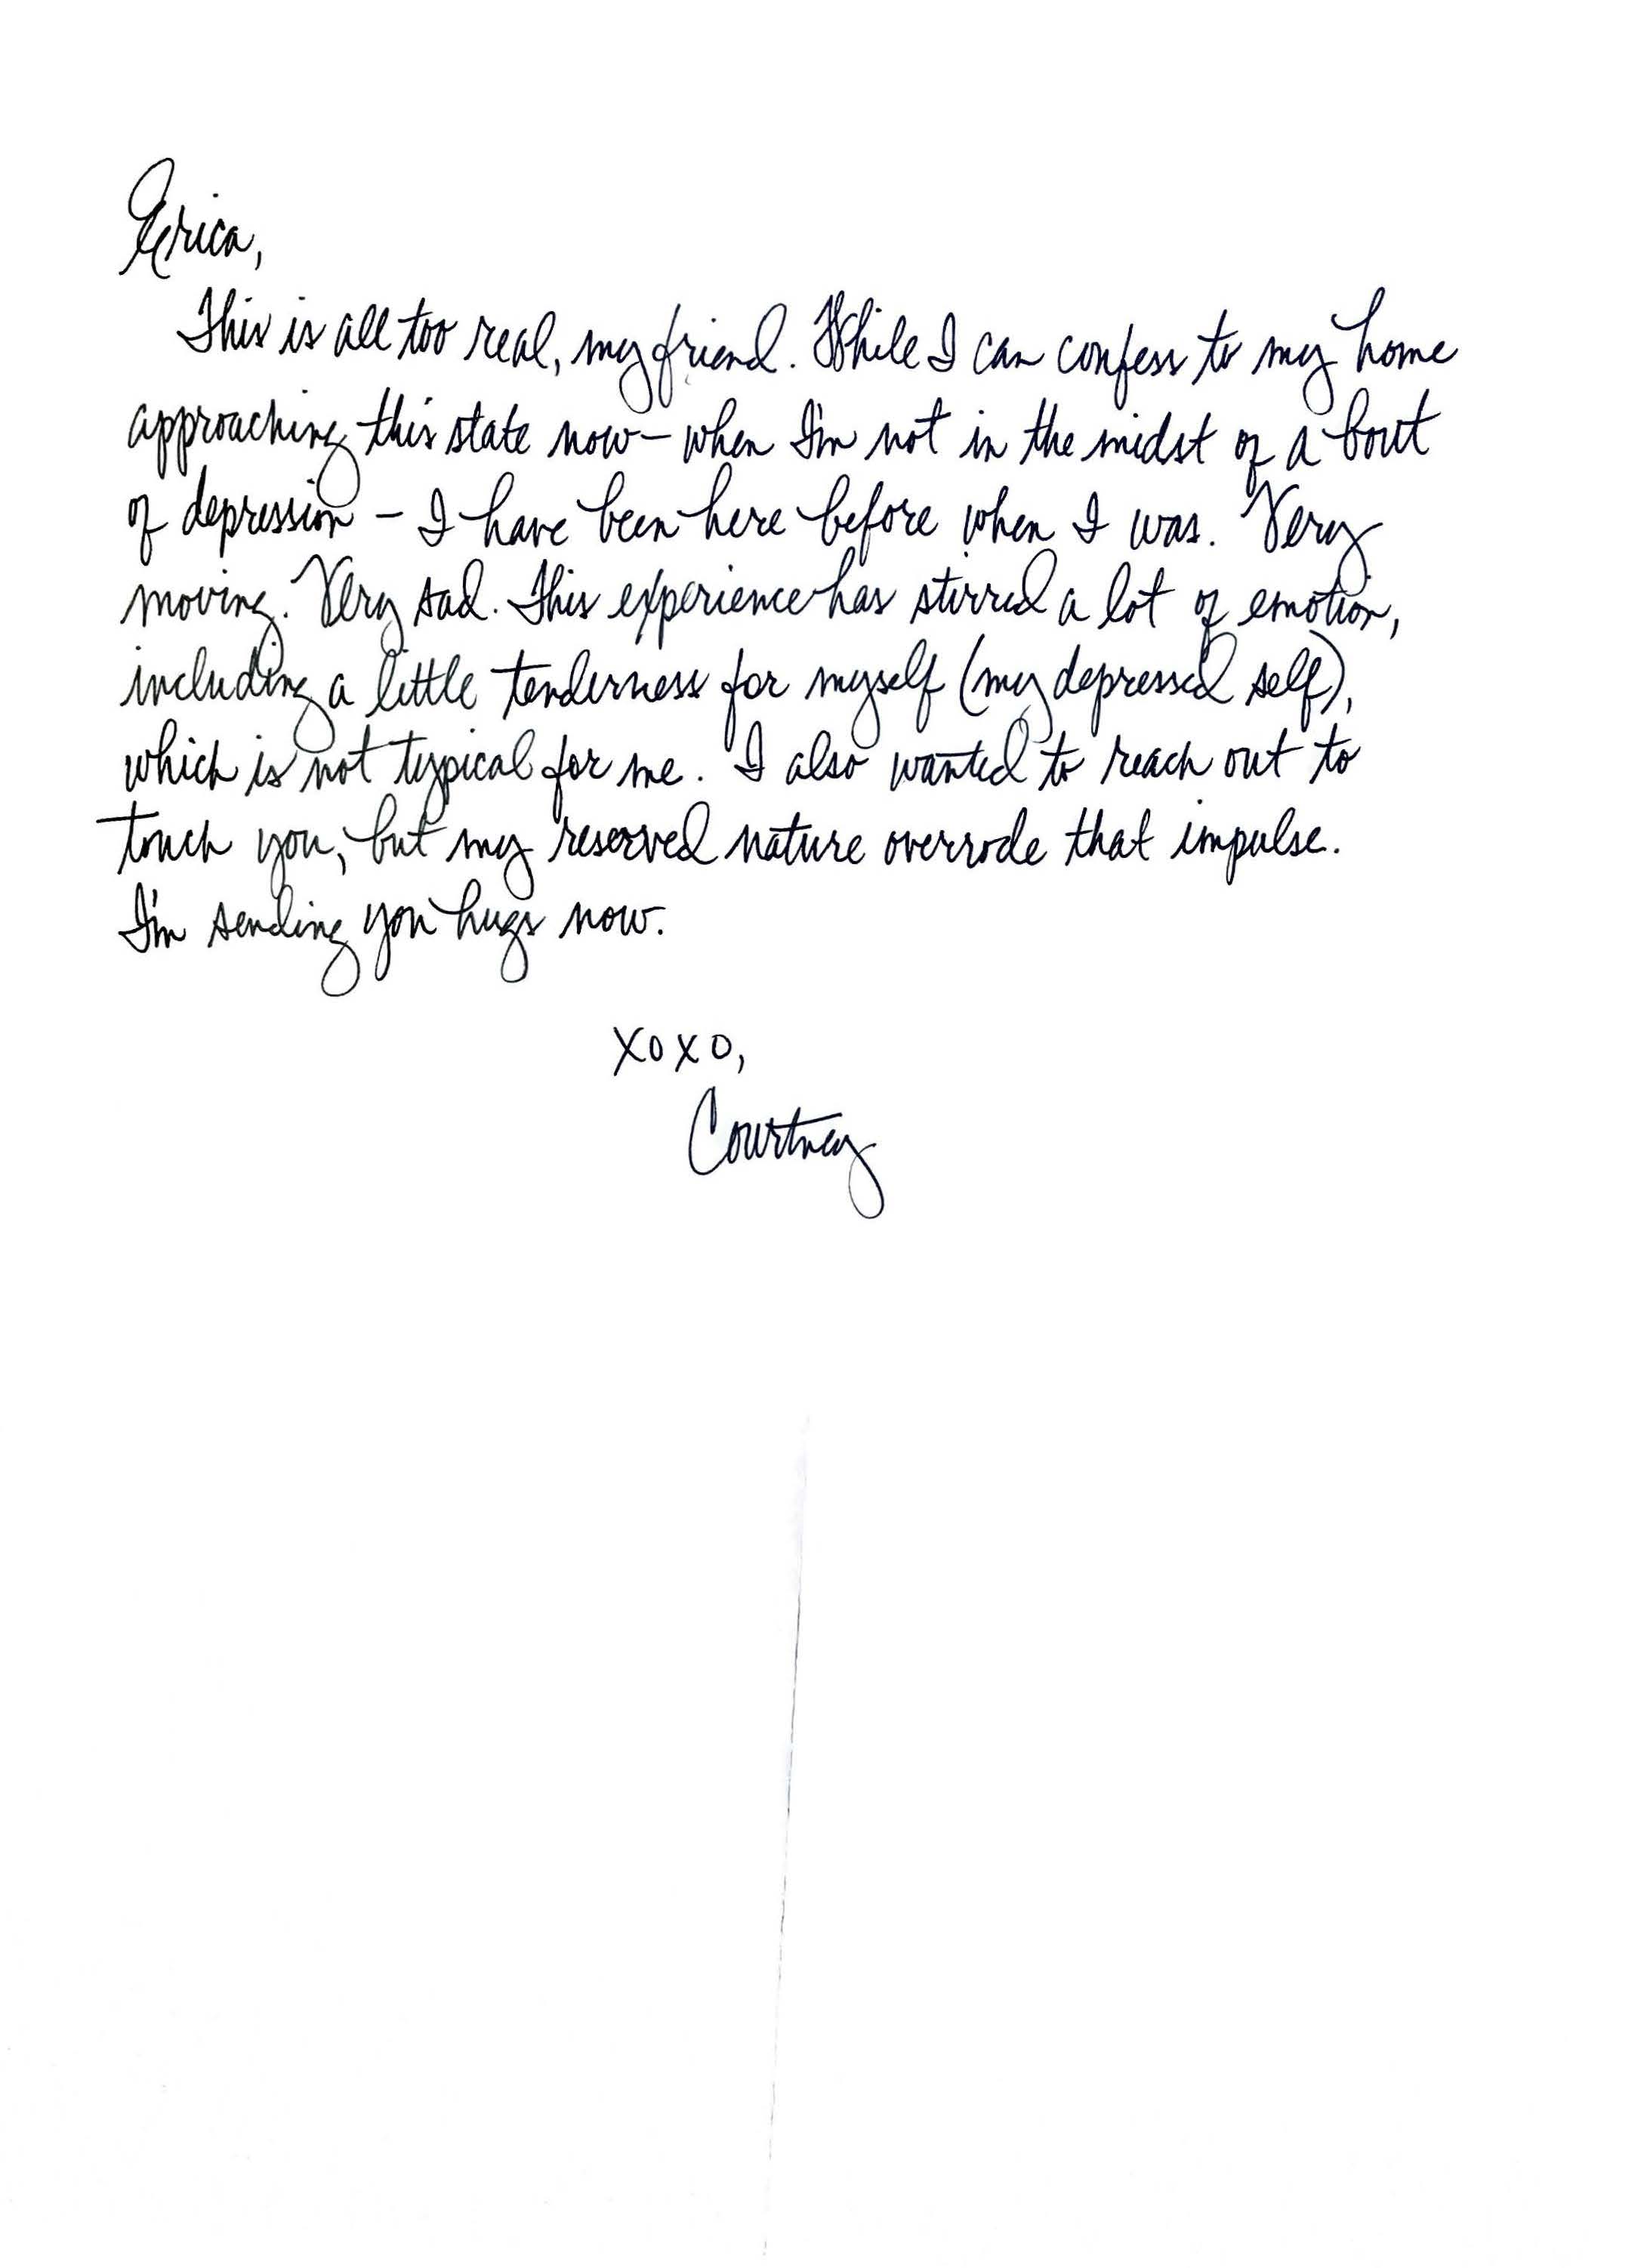 Erica,
This is all too real, my friend. While I can confess to my home
approaching this state now – when I'm not in the midst of a bout
of depression – I have been here before when I was. Very
moving. Very sad. This experience has stirred a lot of emotion,
including a little tenderness for myself (my depressed self),
which is not typical for me. I also wanted to reach out to
touch you, but my reserved nature overrode that impulse.
I'm sending you hugs now.
xoxo,
Courtney